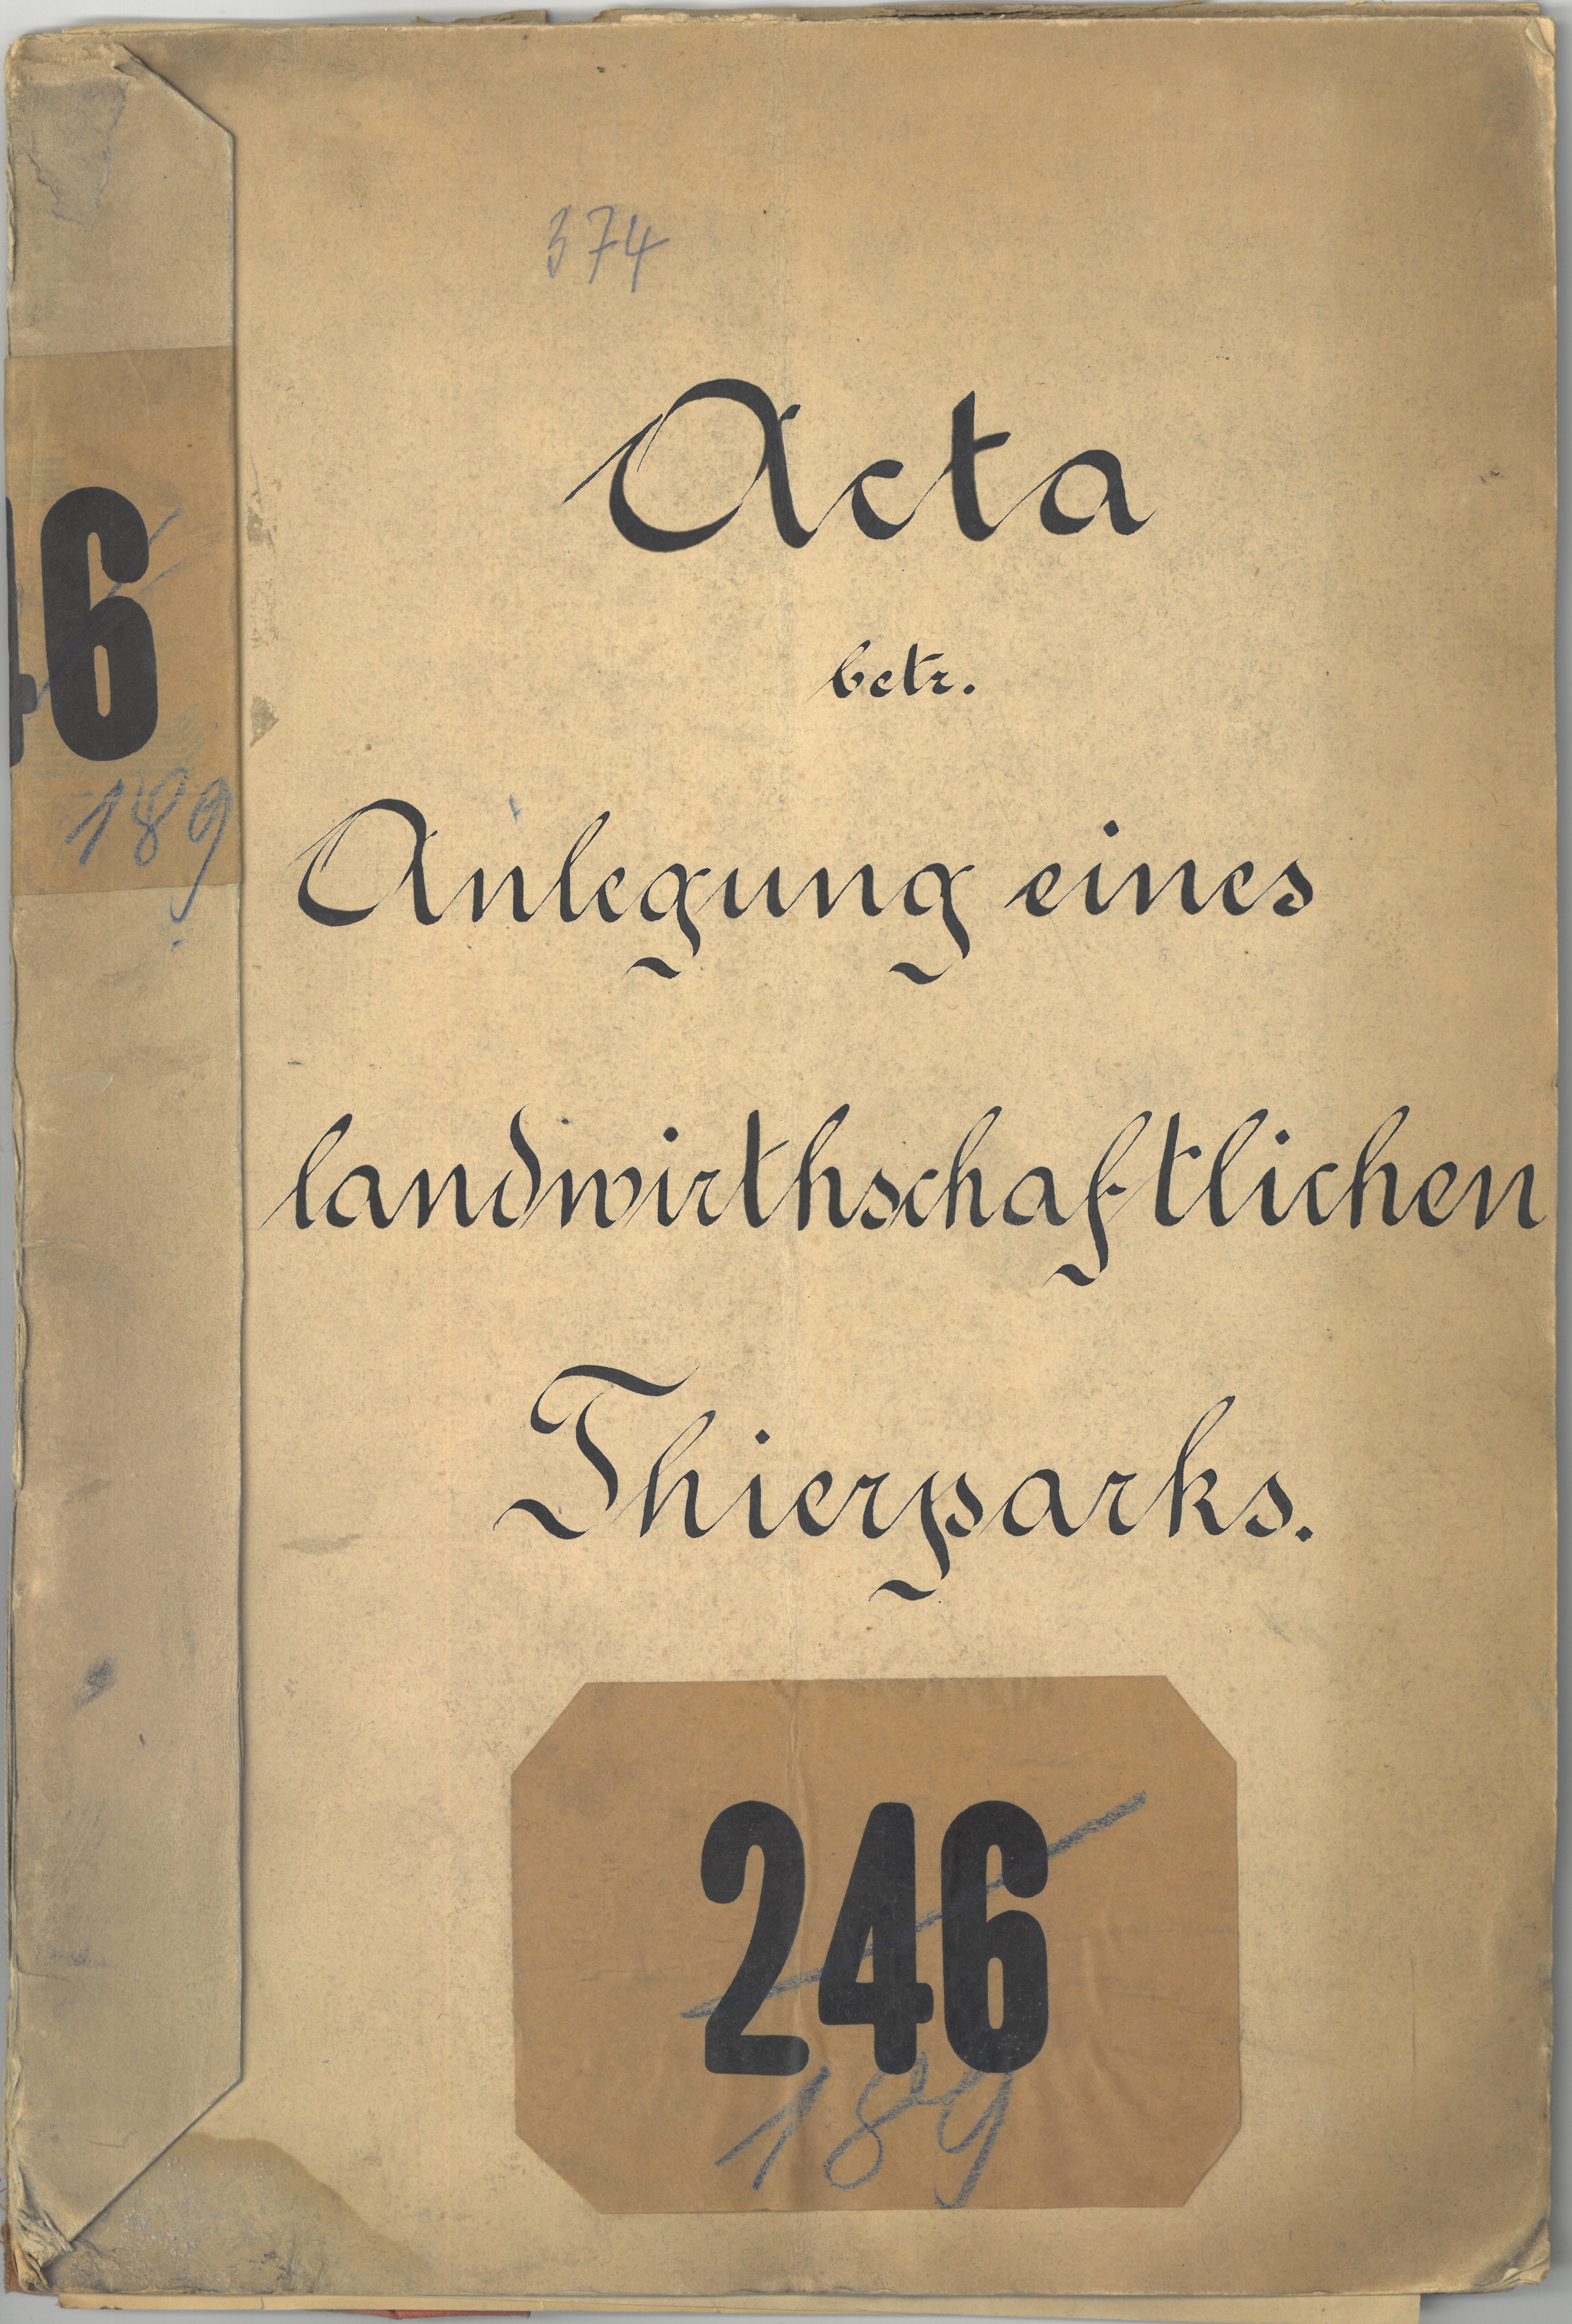 374
Acta
betr.
Anlegung eines
landwirthschaftlichen
Thierparks.
246
189
46
189